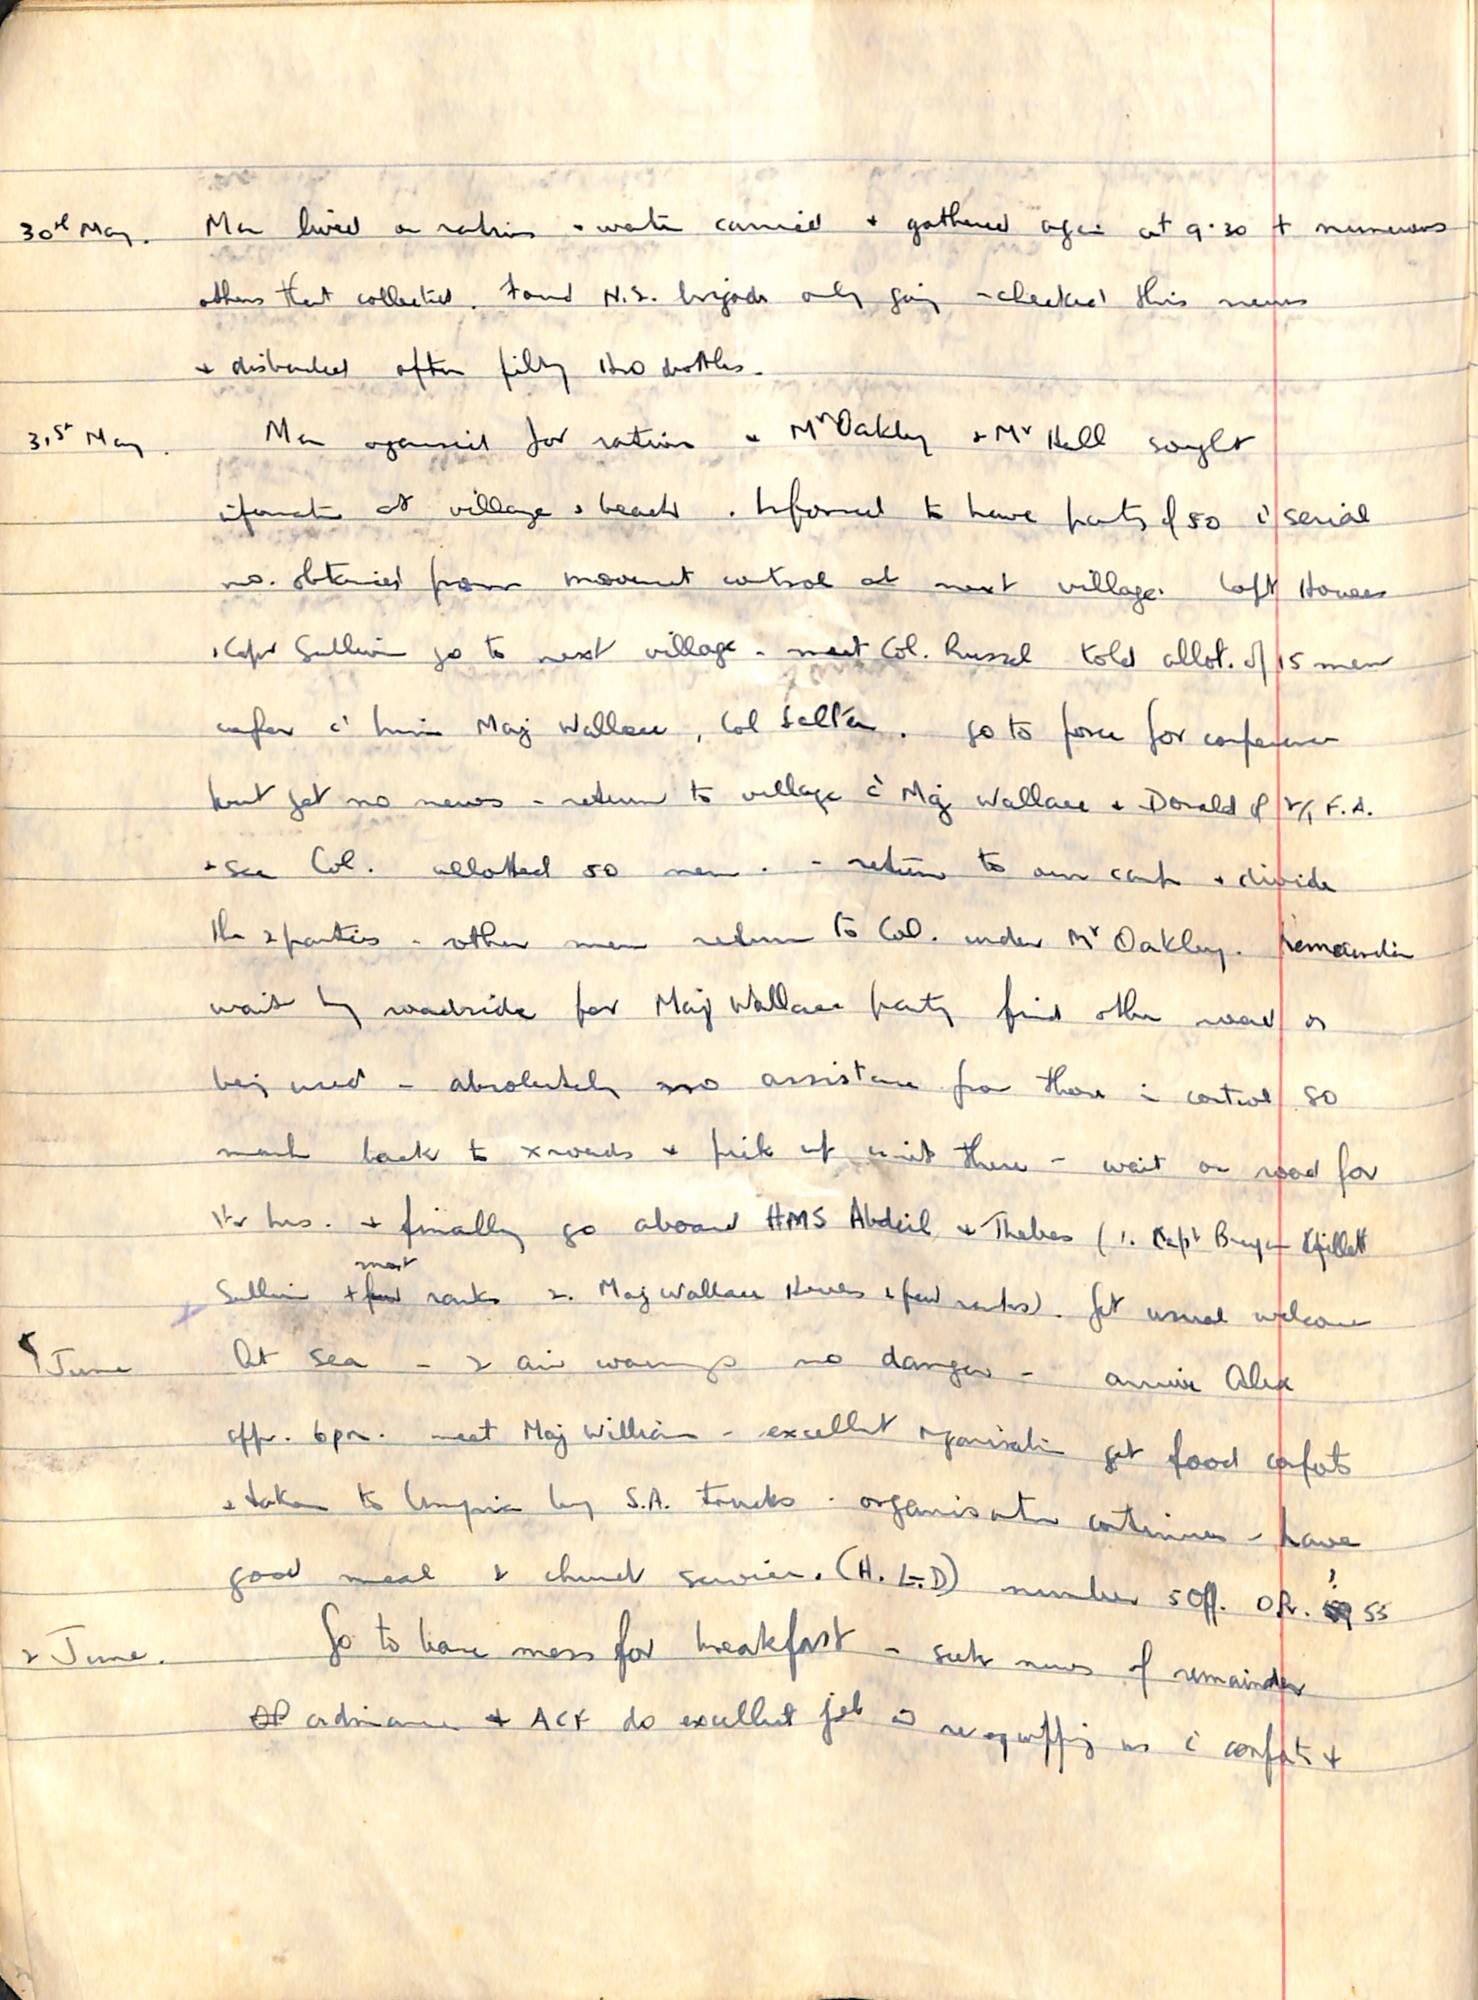 30th May. Men lived on rations & water carried & gathered again at 9.30 + numerous
others that collected. Found N.Z. brigade only going - checked this news
& disbanded after filling H2O bottles.
31st May. Men organised for rations & Mr Oakley & Mr Hall sought
information at village & beach. Informed to have party of 50 c̄ serial
no. obtained from movement control at next village. Capt
& Capt Sullivan go to next village - meet Col. Russel told allot. of 15 men
confer c̄ him Maj Wallace, Col Salter. go to force for conference
but get no news - return to village c̄ Maj Wallace & Donald of 2/1 F.A.
& see Col. allotted 50 men. - return to our camp & divide
the 2 parties - other men return to Col. under Mr Oakley. Remainder
wait by roadside for Maj Wallace party find other road is
being used - absolutely no assistance from those in control so
march back to xroads & pick up unit there - wait on road for
hrs. & finally go aboard HMS Abdeil & Thebes (1. Capt Gillett
Sullivan + most ranks 2. Maj Wallace & few ranks). Get usual welcome
1 June At sea - 2 air warnings no danger - arrive Alex
appr. 6pm. meet Maj William - excellent organisation get food comforts
& taken to by S.A. trucks - organisation continues - have
good meal & church service. (H. L.D) number 5 Off. OR. 55
2 June. Go to have mess for breakfast - seek news of remainder
ordinance & ACF do excellent job in reequipping us c̄ comforts &